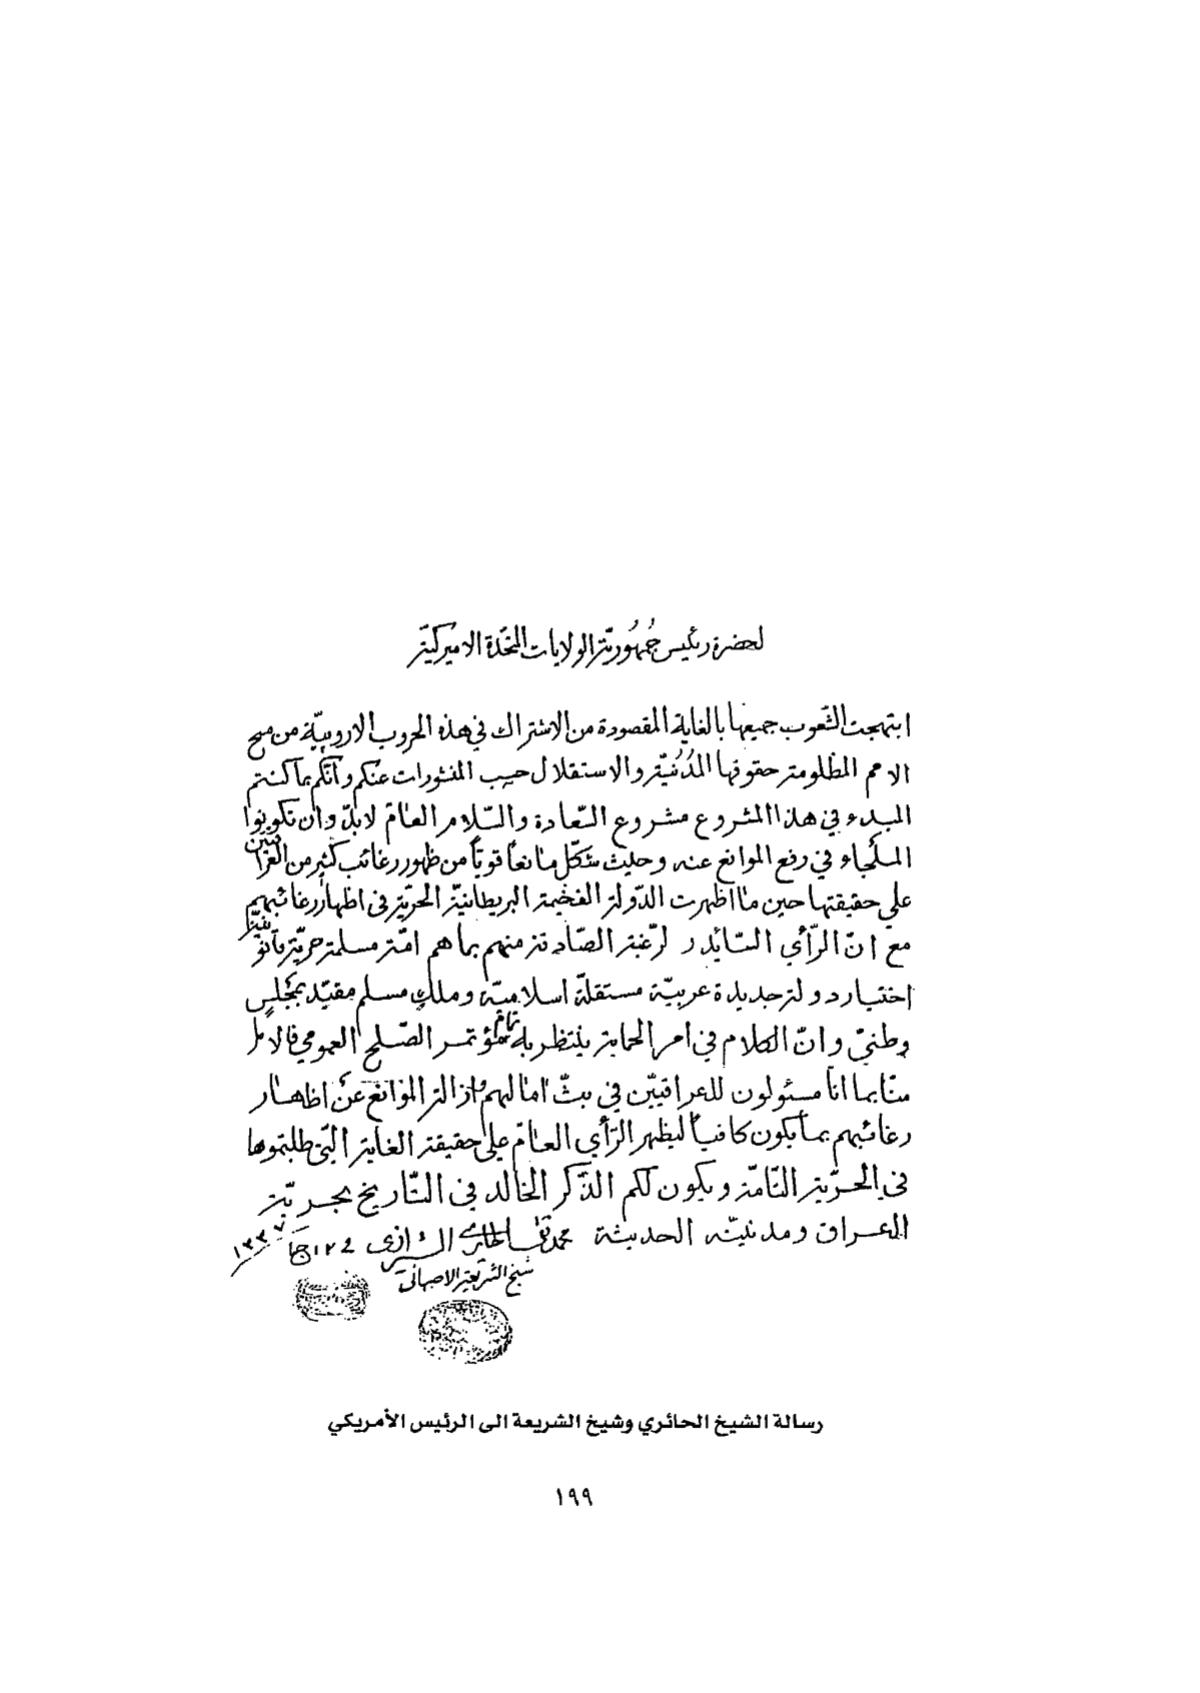 لحضرة رئيس جُمهُوريّة الولايات المتّحدة الاميركيّة
ابتهجت الشّعوب جميعها بالغاية المقصودة من الاشتراك في هذه الحروب الاروبيّة من منح
الامم المظلومة حقوقها المَدَنيّة والاستقلال حسب المنشورات عنكم وانّكم بما كنتم
المبدء في هذا المشروع مشروع السّعادة والسّلام العامّ لابدّ وان تكونوا
الملجاء في رفع الموانع عنه وحيث شكّل مانعاً قويّاً من ظهور رغائب كثير من العراقيين
علي حقيقتها حين ما اظهرت الدّولة الفخيمة البريطانيّة الحريّة في اظهار رغائبهم
مع انّ الرّأي السّائد لرغبة الصّادقة منهم بما هم امّة مسلمة حريّة قانونيّة
اختيار دولة جديدة عربيّة مستقلّة اسلاميّة وملك مسلم مقيّد بمجلسٍ
وطنيّ وانّ الكلام في امر الحماية ينتظر به تمام مؤتمر الصّلح العمومي فالامل
منّا بما انّا مسئولون للعراقيّين في بثّ امالهم وازالة الموانع عن اظهار
رغائبهم بما يكون كافياً ليظهر الرّأي العامّ على حقيقة الغاية الّتي طلبتموها
في الحريّة التّامّة ويكون لكم الذّكر الخالد في التّاريخ بحريّة
العراق ومدنيّته الحديثة محمد تقي الحائري الشيرازي ١٢ ج١ ١٣٣٧
شيخ الشريعة الاصبهاني
رسالة الشيخ الحائري وشيخ الشريعة الى الرئيس الأمريكي
١٩٩